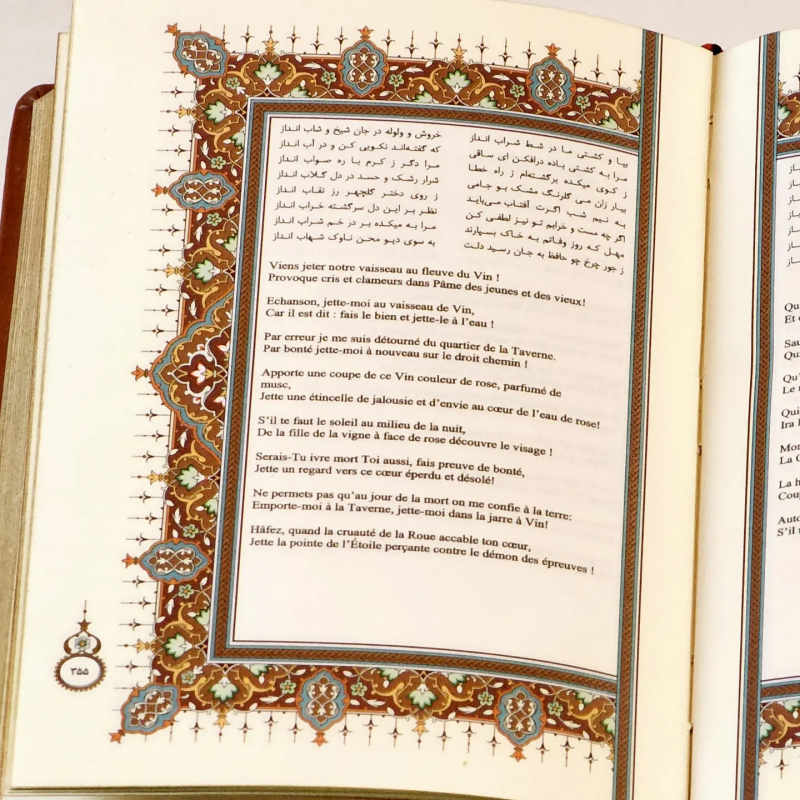 بیا و کشتی ما در شط شراب انداز
خروش و ولوله در جان شیخ و شاب انداز
مرا به کشتی باده درافکن ای ساقی
که گفته‌اند نکویی کن و در آب انداز
ز کوی میکده برگشته‌ام ز راه خطا
مرا دگر ز کرم با ره صواب انداز
بیار زان می گلرنگ مشک بو جامی
شرار رشک و حسد در دل گلاب انداز
اگر چه مست و خرابم تو نیز لطفی کن
نظر بر این دل سرگشته خراب انداز
به نیم شب اگرت آفتاب می‌باید
ز روی دختر گلچهر رز نقاب انداز
مهل که روز وفاتم به خاک بسپارند
مرا به میکده بر در خم شراب انداز
ز جور چرخ چو حافظ به جان رسید دلت
به سوی دیو محن ناوک شهاب انداز
Viens jeter notre vaisseau au fleuve du Vin !
Provoque cris et clameurs dans Pâme des jeunes et des vieux!
Echanson, jette-moi au vaisseau de Vin,
Car il est dit : fais le bien et jette-le à l'eau !
Par erreur je me suis détourné du quartier de la Taverne.
Par bonté jette-moi à nouveau sur le droit chemin !
Apporte une coupe de ce Vin couleur de rose, parfumé de
musc,
Jette une étincelle de jalousie et d'envie au cœur de l'eau de rose!
S'il te faut le soleil au milieu de la nuit,
De la fille de la vigne à face de rose découvre le visage !
Serais-Tu ivre mort Toi aussi, fais preuve de bonté,
Jette un regard vers ce cœur éperdu et désolé!
Ne permets pas qu'au jour de la mort on me confie à la terre:
Emporte-moi à la Taverne, jette-moi dans la jarre à Vin!
Hâfez, quand la cruauté de la Roue accable ton cœur,
Jette la pointe de l'Étoile perçante contre le démon des épreuves !
۳۵۵